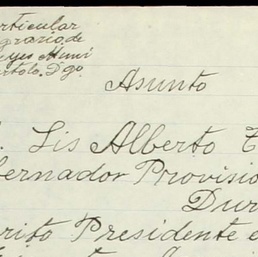 rticular
grario, de
yes Muni
artolo. Dgo.
Asunto
. Lis Alberto T
bernador Provisio
Dur
rito Presidente e